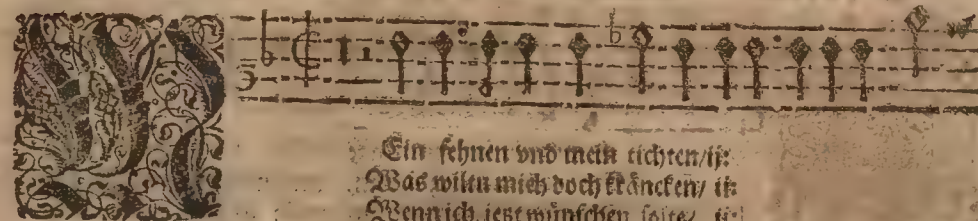 M
Ein sehnen vnd mein tichten/ ij:
Was wiltu mich doch kräncken/ ij:
Wenn ich jetzt wünschen solte/ ij: